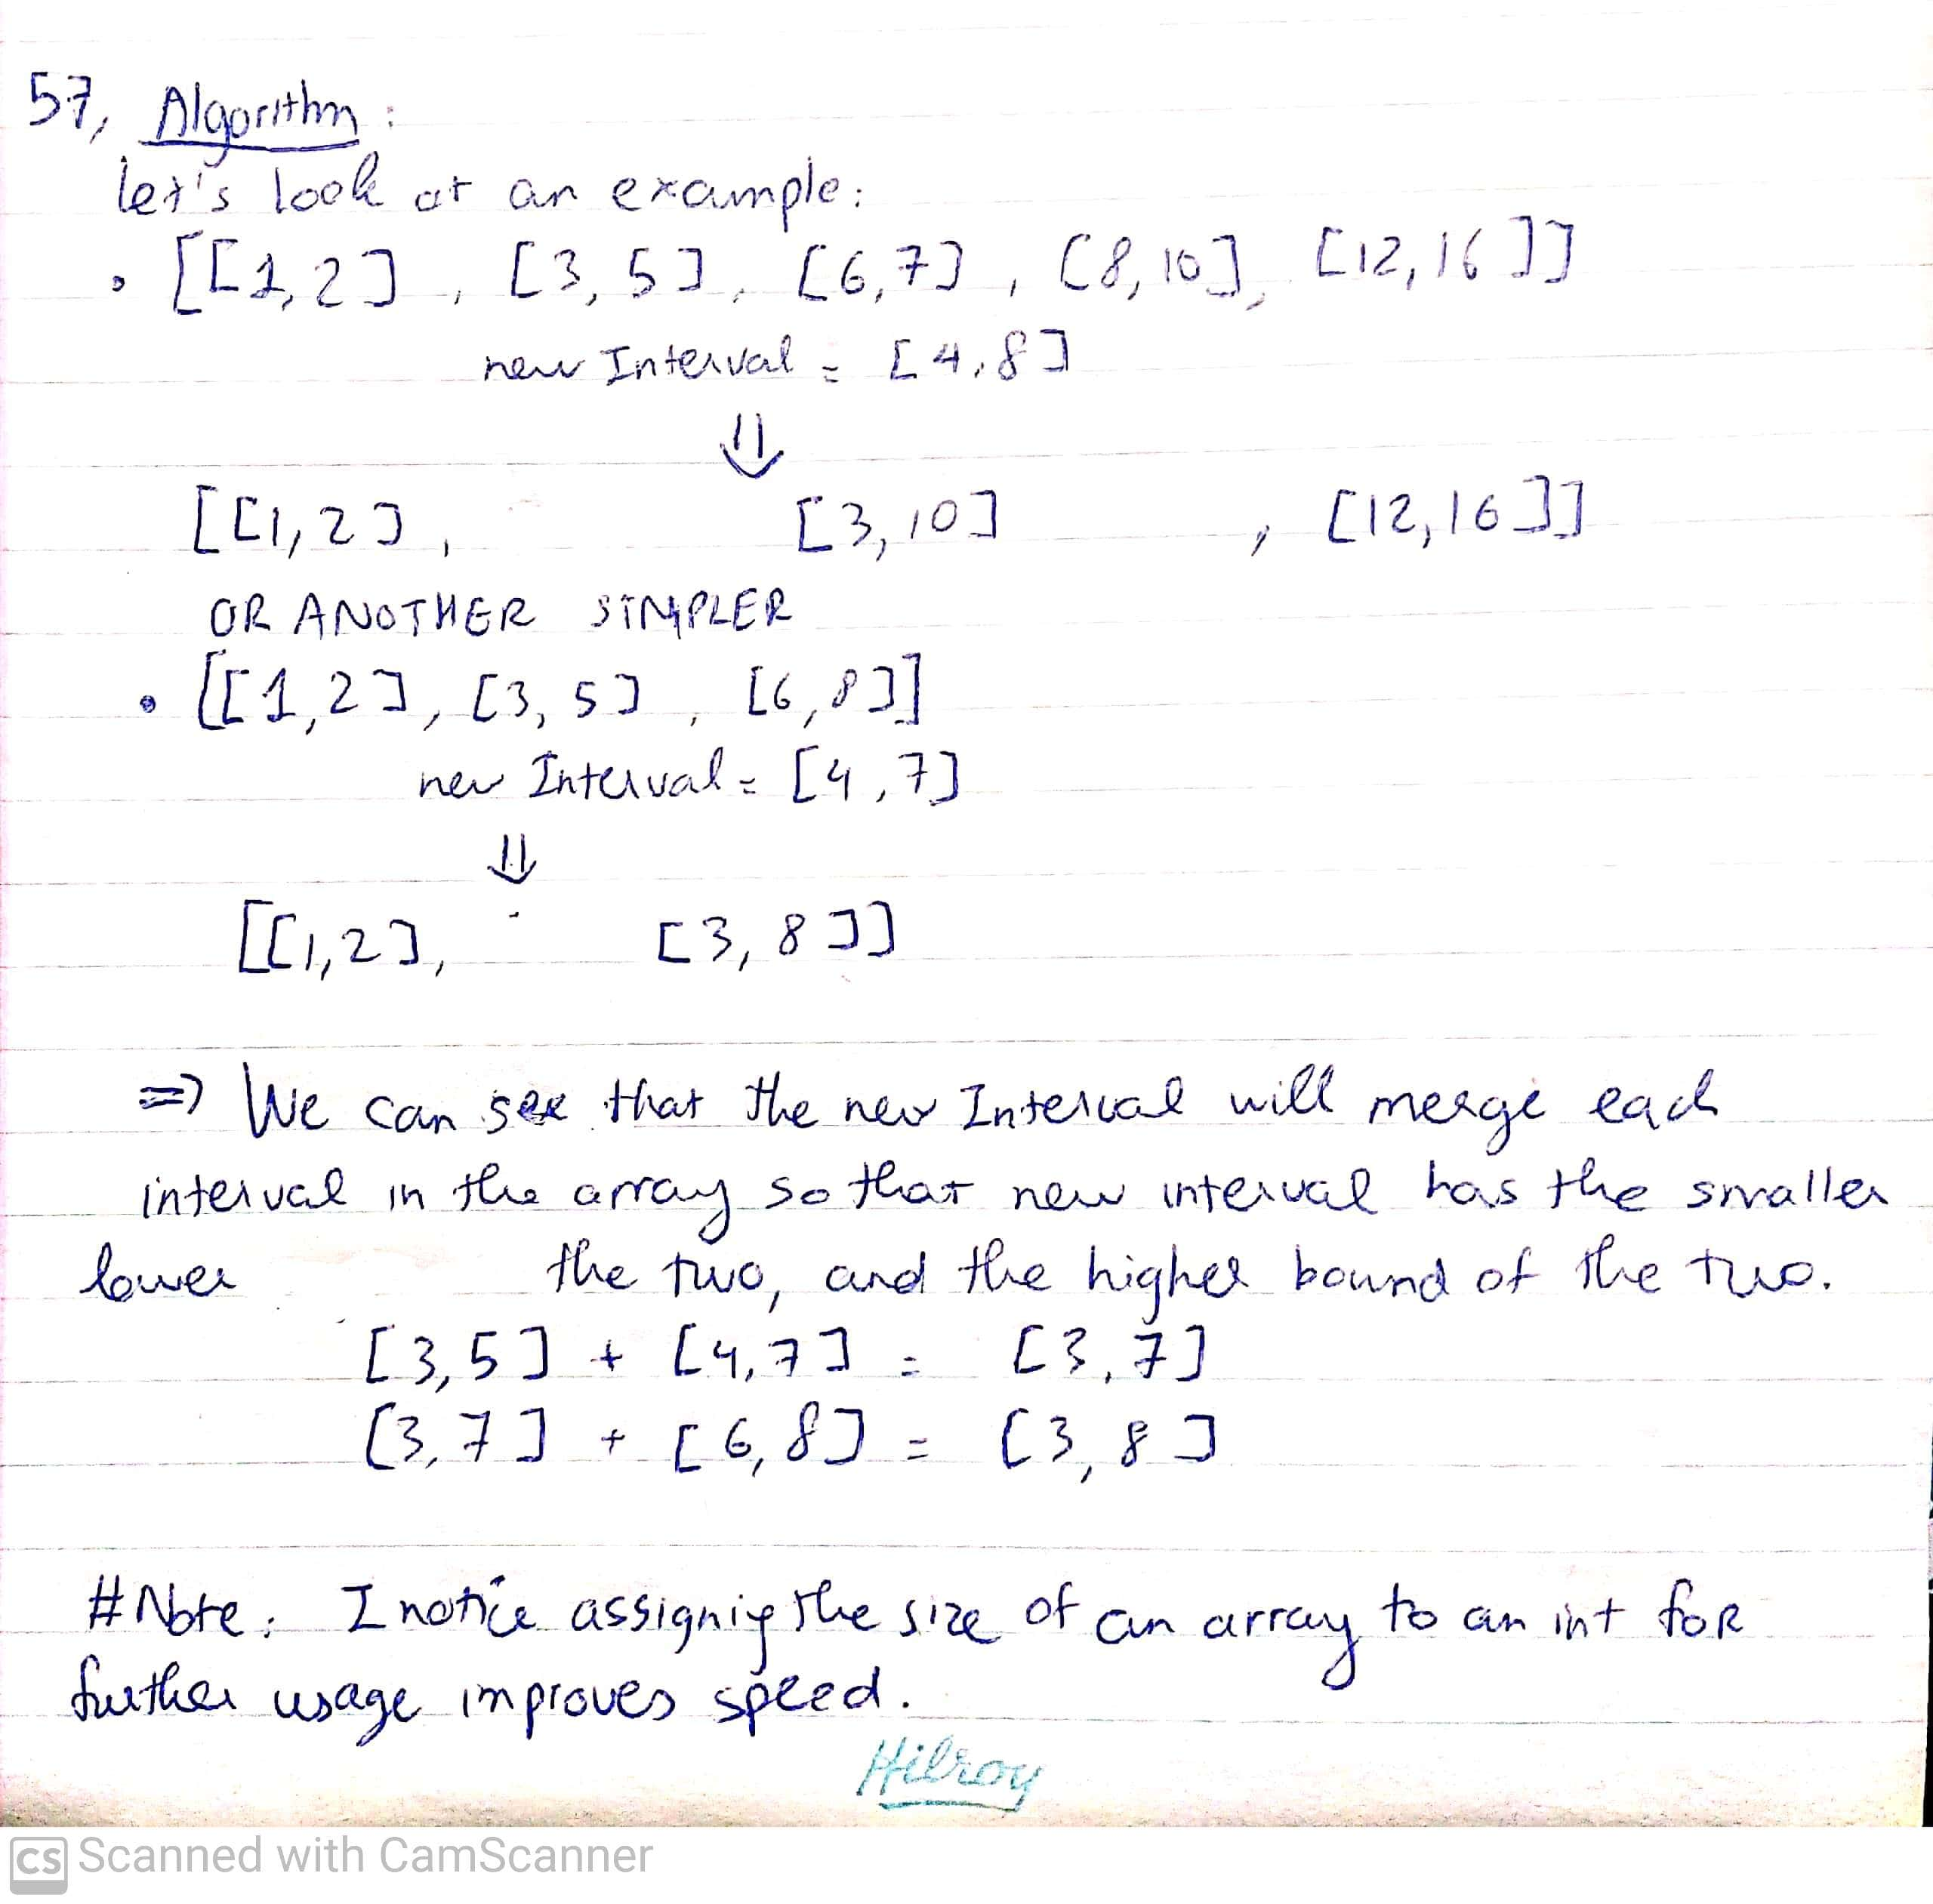 57, Algorithm:
let's look at an example:
• [[1,2], [3,5], [6,7], [8,10], [12,16]]
new Interval = [4,8]
⇓
[[1,2], [3,10], [12,16]]
OR ANOTHER SIMPLER
• [[1,2], [3,5], [6,8]]
new Interval = [4,7]
⇓
[[1,2], [3,8]]
=> We can see that the new Interval will merge each
interval in the array so that new interval has the smaller
lower the two, and the higher bound of the two.
[3,5] + [4,7] = [3,7]
[3,7] + [6,8] = [3,8]
#Note: I notice assignig the size of an array to an int for
further usage improves speed.
Hilroy
CS Scanned with CamScanner